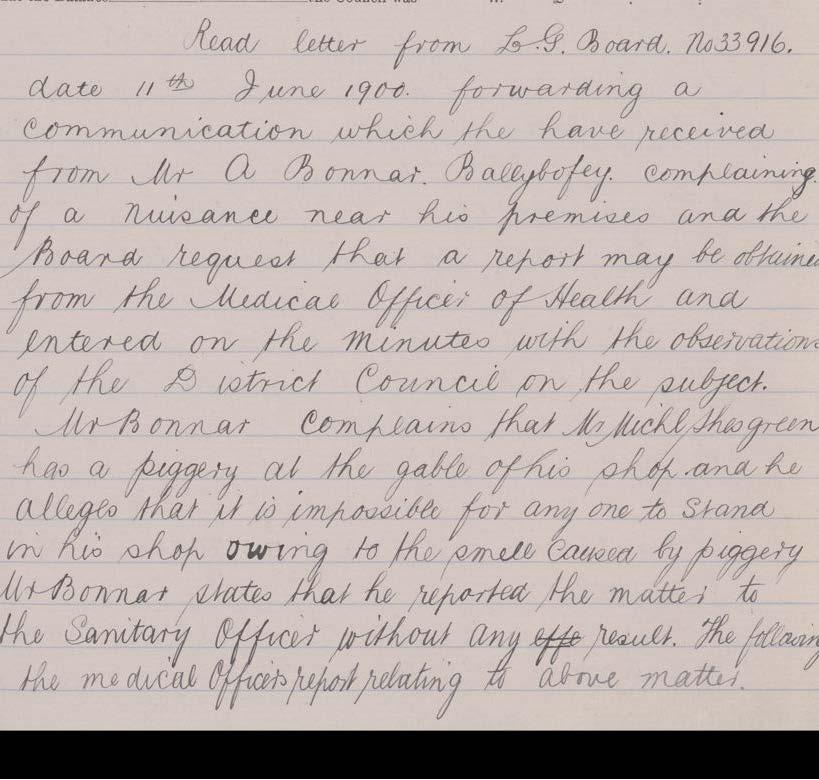 the Council was
Read letter from L.G. Board. No 33916.
date 11th June 1900. forwarding a
communication which the have received
from Mr A Bonnar. Ballybofey. complaining.
of a nuisance near his premises and the
Board request that a report may be obtained
from the Medical Officer of Health and
entered on the Minutes with the observations
of the District Council on the subject.
Mr Bonnar Complains that Mr Michl
has a piggery at the gable of his shop. and he
alleges that it is impossible for any one to Stand
in his shop owing to the smell caused by piggery
Mr Bonnar states that he reported the matter to
the Sanitary Officer without any effe result. The following
the medical Officers report relating to above matter.